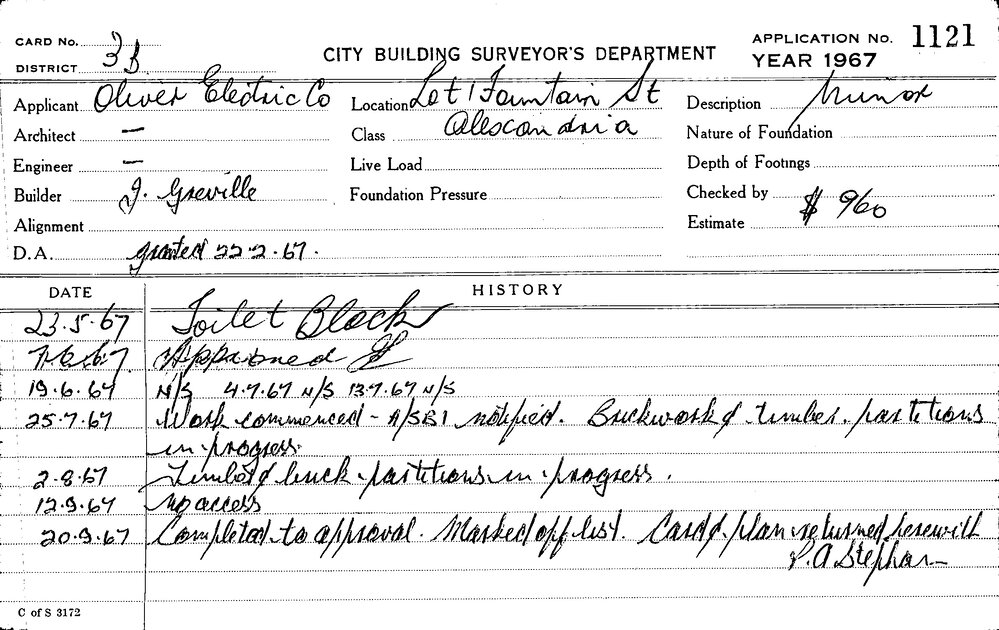 CARD No. 3B
DISTRICT
CITY BUILDING SURVEYOR'S DEPARTMENT
APPLICATION No. 1121
YEAR 1967
Applicant Oliver Electric Co Location Lot 1 Fountain St Description Minor
Architect — Class Alexandria Nature of Foundation
Engineer — Live Load Depth of Footings
Builder J. Greville Foundation Pressure Checked by
Alignment Estimate $ 960
D.A. granted 22.2.67.
DATE HISTORY
23.5.67 Toilet Block
7.6.67 Approved
19.6.67 N/S 4.7.67 N/S 13.7.67 N/S
25.7.67 Work commenced - A/SBI notified. Brickwork & timber partitions
in progress.
2.8.67 Timber & brick partitions in progress.
12.9.67 no access
20.9.67 Completed to approval. Marked off list. Card & plan returned herewith
P. A Stephan
C of S 3172